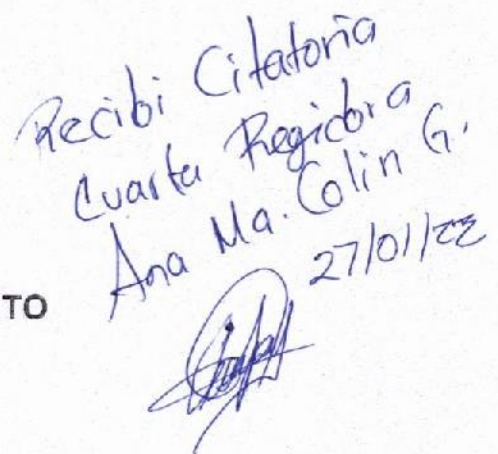 Recibi Citatoria
Cuarta Regidora
Ana Ma. Colin G.
27/01/22
TO